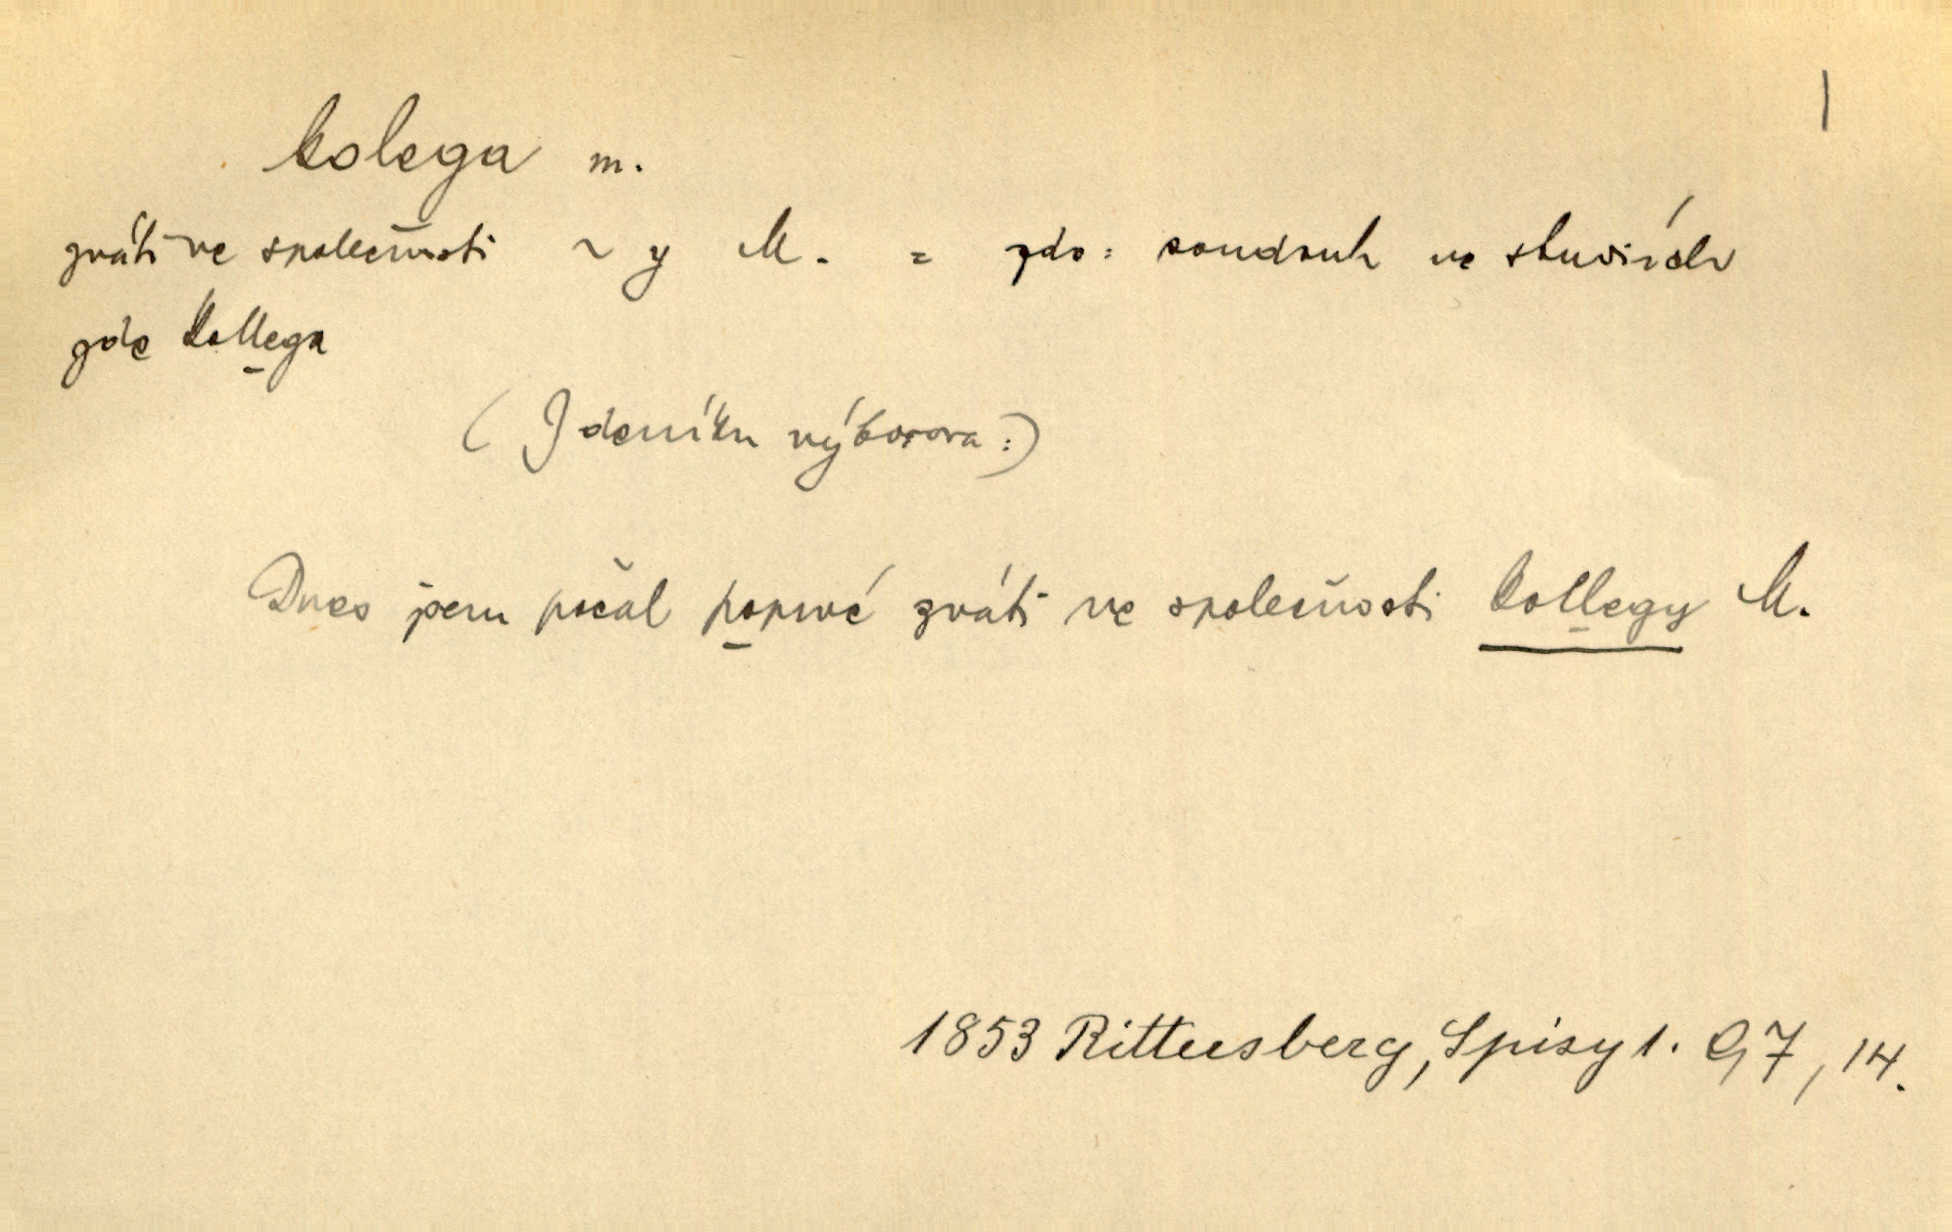 |
kolega m.
zváti ve společnosti ~ y M. = zde: soudruh ve studiích
zde kollega
( Z deníku výborova : )
Dnes jsem počal poprvé zváti ve společnosti kollegy M.
1853 Rittersberg, Spisy 1. 97, 14.